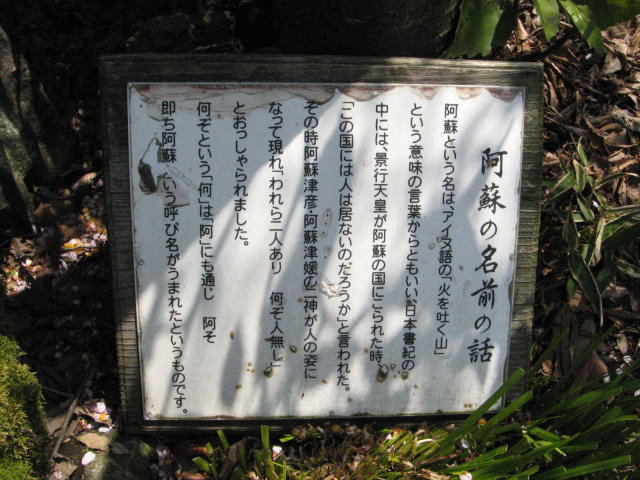 阿蘇の名前の話
阿蘇という名は、アイヌ語の「火を吐く山」
という意味の言葉からともいい、日本書紀の
中には、景行天皇が阿蘇の国にこられた時、
「この国には人は居ないのだろうか」と言われた。
その時阿蘇津彦・阿蘇津媛の二神が人の姿に
なって現れ「われら二人あり　何ぞ人無し」
とおっしゃられました。
何ぞという「何」は「阿」にも通じ　阿そ
即ち阿蘇　いう呼び名がうまれたというものです。